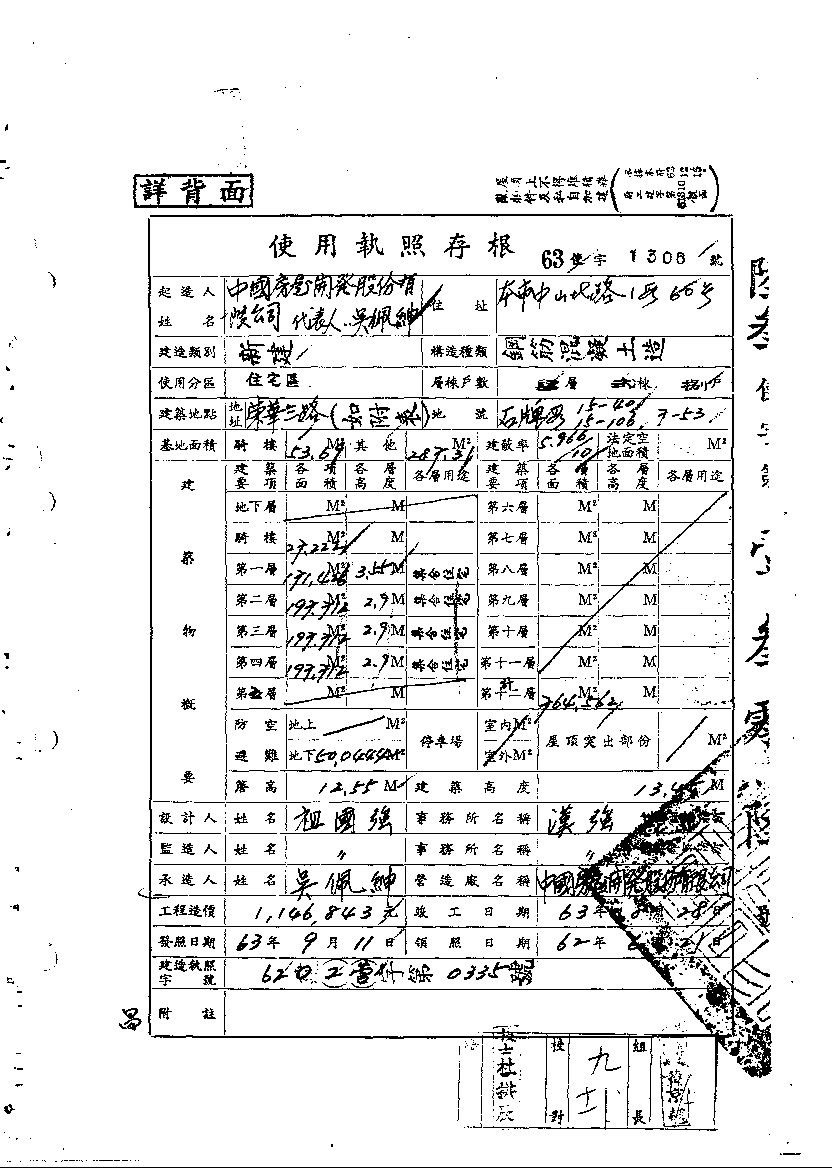 詳背面
使用執照存根 63 使字 1306 號
起造人姓名 中國房屋開發股份有限公司 代表人 吳佩紳 住址 本市中山北路
建造類別 新建 構造種類 鋼筋混凝土造
使用分區 住宅區 層棟戶數 層 棟
建築地點 地址 榮華三路(如附表) 地號 石牌段 15-40 15-106 7-53
基地面積 騎樓 53.67 M² 其他 287.31 M² 建蔽率 法定空地面積 M²
建築物概要
建築要項 各項面積 各層高度 各層用途 建築要項 各層面積 各層高度 各層用途
地下層 M² M 第六層 M² M
騎樓 27.222 M² M 第七層 M² M
第一層 171.426 M² 3.55 M 集合住宅 第八層 M² M
第二層 197.972 M² 2.9 M 集合住宅 第九層 M² M
第三層 197.972 M² 2.9 M 集合住宅 第十層 M² M
第四層 197.972 M² 2.9 M 集合住宅 第十一層 M² M
第五層 M² M 計 764.562
防空避難 地上 M² 停車場 室內 M² 屋頂突出部份 M²
地下 50.0444 M² 室外 M²
簷高 12.55 M 建築高度 M
設計人 姓名 祖國強 事務所名稱 漢強
監造人 姓名 〃 事務所名稱 〃
承造人 姓名 吳佩紳 營造廠名稱 中國房屋開發股份有限公司
工程造價 1,146,843 元 竣工日期 63 年 8 月 28 日
發照日期 63 年 9 月 11 日 領照日期 62 年 21 日
建造執照字號 第 0335 號
附註
校對 九 十一 組長